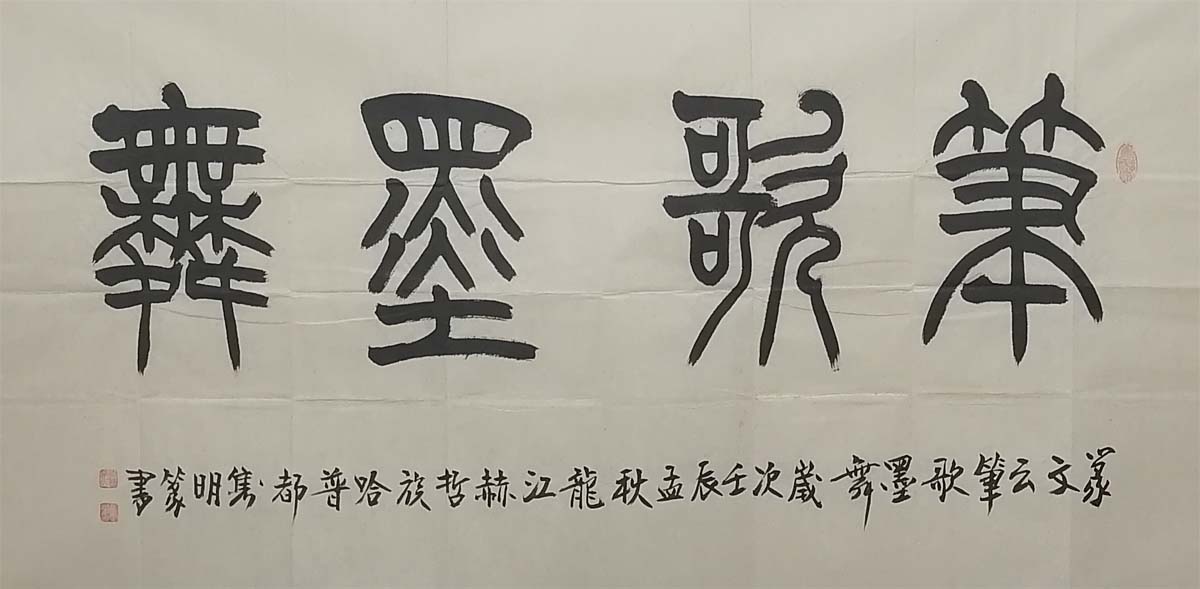 筆歌墨舞
篆文云筆歌墨舞歲次壬辰孟秋龍江赫哲族哈普都隽明篆書